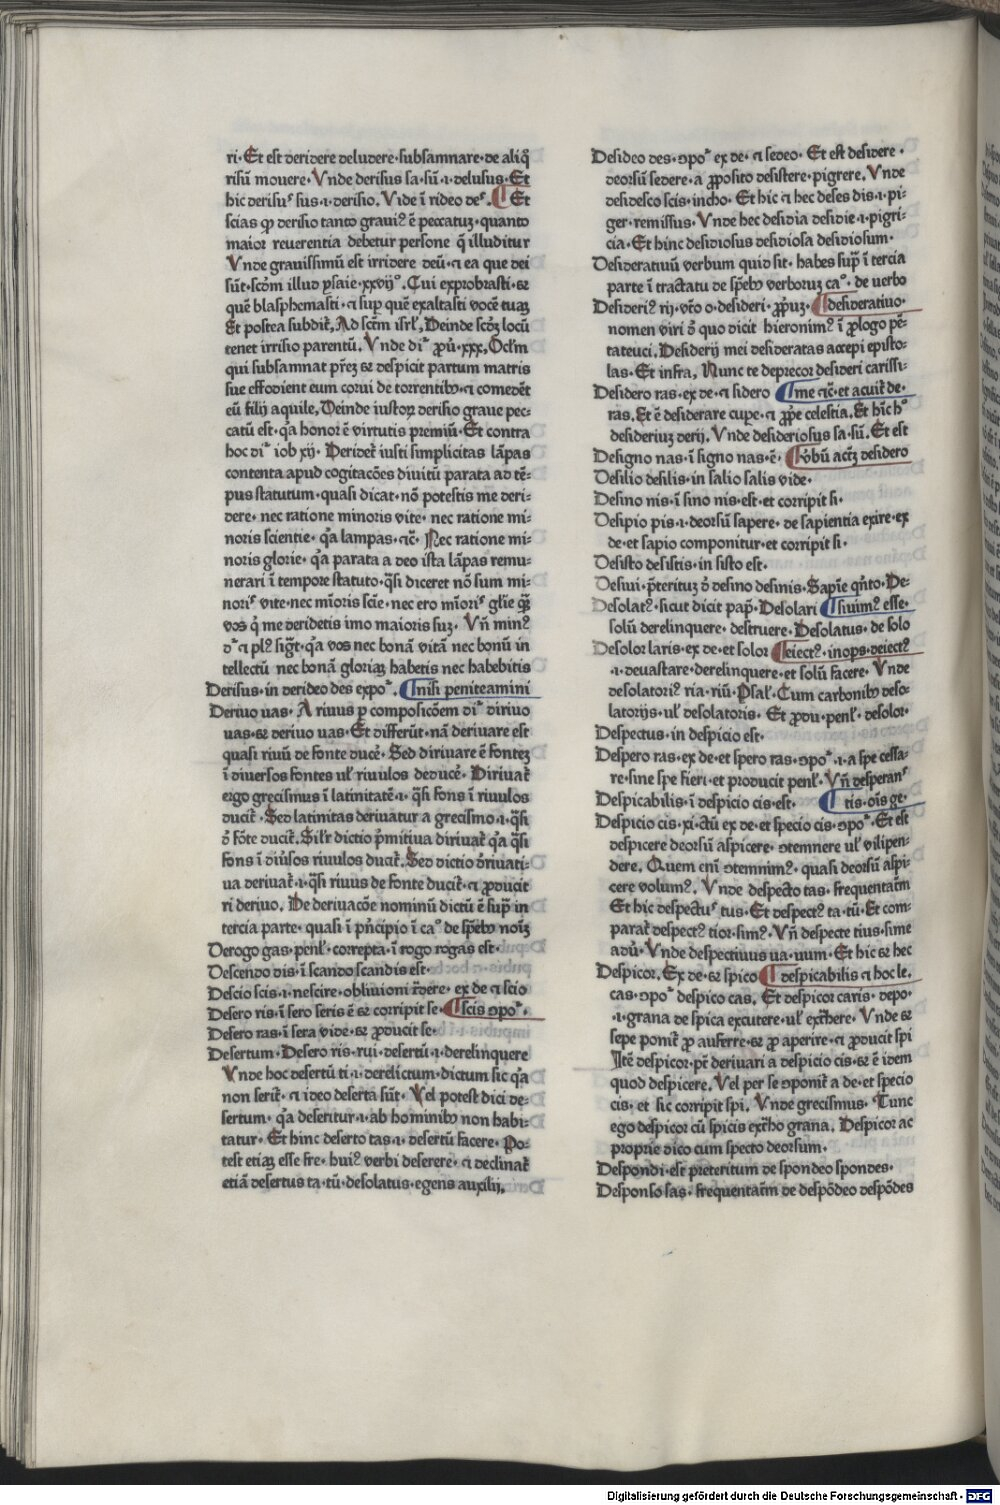 ri· Et est deridere deludere·subsamnare·de aliq̄
risū mouere· Vnde derisus sa·sū·i·delusus· Et
hic derisuˢ sus·i·derisio. Vide ī rideo deˢ. ¶ Et
scias ꝙ derisio tanto grauiꝰ ē peccatuꝫ·quanto
maior reuerentia debetur persone q̄ illuditur
Vnde grauissimū est irridere deū·⁊ ea que dei
sūt·scd̄m illud ysaie·xxvijº. Cui exprobrasti·⁊
quē blasphemasti·⁊ sup̄ quē exaltasti vocē tuaꝫ
Et postea subdit̄, Ad sct̄m isrl̄, Deinde scd̄ꝫ locū
tenet irrisio parentū. Vnde diʳ ꝓū·xxx, Ocl̄m
qui subsamnat pr̄eꝫ ⁊ despicit partum matris
sue effodient eum corui de torrentibꝰ ⁊ comedēt
eū filij aquile, Deinde iustoꝝ derisio graue pec-
catū est·q̄a honor ē virtutis premiū· Et contra
hoc diʳ iob xij· Deridet̄ iusti simplicitas lāpas
contenta apud cogitacōes diuitū parata ad tē-
pus statutum·quasi dicat·nō potestis me deri-
dere·nec ratione minoris vite·nec ratione mi-
noris scientie·q̄a lampas·⁊c̄· Nec ratione mi-
noris glorie·q̄a parata a deo ista lāpas remu-
nerari ī tempore statuto·q̄si diceret nō sum mi-
noriˢ vite·nec mīoris scīe·nec ero mīoriˢ gl̄ie ꝙꝫ
vos q̄ me deridetis imo maioris suꝫ· Vn̄ minꝰ
dʳ ⁊ plꝰ sigt̄·q̄a vos nec bonā vitā nec bonū in
tellectū nec bonā gloriaꝫ habetis nec habebitis
Derisus·in derideo des expoʳ. ¶ nisi peniteamini
Deriuo uas· A riuus ꝑ composicōem diʳ diriuo
uas·⁊ deriuo uas· Et differūt·nā deriuare est
quasi riuū de fonte ducē· Sed diriuare ē fonteꝫ
ī diuersos fontes ul̄ riuulos deducē· Diriuat̄
ergo grecismus ī latinitatē·i·q̄si fons ī riuulos
ducit̄· Sed latinitas deriuatur a grecismo·i·q̄si
ð fōte ducit̄. Sil̄r dictio p̄mitiua diriuat̄ q̄a q̄si
fons ī diūsos riuulos ducit̄. Sed dictio ðriuati-
ua deriuat̄·i·q̄si riuus de fonte ducit̄·⁊ ꝓducit
ri deriuo. De deriuacōe nominū dictū ē sup̄ in
tercia parte·quasi ī pn̄cipio ī caº de sp̄ebꝰ noīꝫ
Derogo gas·penl̄·correpta·ī rogo rogas est·
Descendo dis·ī scando scandis est·
Descio scis·i·nescire·obliuioni t̄dere·ex de ⁊ scio
Desero ris·ī sero seris ē ⁊ corripit se· ¶ scis ↄpoʳ·
Desero ras·ī sera vide·⁊ ꝓducit se·
Desertum·Desero ris·rui·desertū·i·derelinquere
Vnde hoc desertū ti·i·derelictum·dictum sic q̄a
non serit̄·⁊ ideo deserta sūt· Vel potest dici de-
sertum·q̄a deseritur·i·ab hominibꝰ non habi-
tatur· Et hinc deserto tas·i·desertū facere· Po-
test etiaꝫ esse fre·huiꝰ verbi deserere·⁊ declinat̄
etiā desertus ta·tū·desolatus·egens auxilij,
Desideo des·ↄpoʳ ex de·⁊ sedeo· Et est desidere·
deorsū sedere·a ꝓposito desistere·pigrere. Vnde
desidesco scis·incho· Et hic ⁊ hec deses dis·i·pi-
ger·remissus· Vnde hec desidia desidie·i·pigri-
cia· Et hinc desidiosus desidiosa desidiosum·
Desideratiuū verbum quid sit·habes sup̄ ī tercia
parte ī tractatu de sp̄ebꝰ verboruꝫ caº·de uerbo
Desideriꝰ rij·vt̄o o·desideri·ꝓpuꝫ· ¶ desideratiuo·
nomen viri ð quo dicit hieronimꝰ ī ꝓlogo pē-
tateuci. Desiderij mei desideratas accepi episto-
las· Et infra, Nunc te deprecor desideri carissi-
Desidero ras·ex de·⁊ sidero ¶ me ⁊c̄·et acuit̄ de·
ras. Et ē desiderare cupe·⁊ ꝓpe celestia. Et hīc hº
desideriuꝫ derij. Vnde desideriosus sa·sū. Et est
Designo nas·ī signo nas·ē· ¶ vbū actꝫ desidero
Desilio desilis·in salio salis vide·
Desino nis·ī sino nis·est·et corripit si·
Desipio pis·i·deorsū sapere·de sapientia exire·ex
de·et sapio componitur·et corripit si·
Desisto desistis·in sisto est·
Desiui·p̄terituꝫ ð desino desinis·Sapīe qn̄to·De-
Desolatꝰ·sicut dicit pap̄· Desolari ¶ siuimꝰ esse·
solū derelinquere·destruere· Desolatus·de solo
Desolor laris·ex de·et solor ¶ eiectꝰ·inops·deiectꝰ
·i·deuastare·derelinquere·et solū facere· Vnde
desolatoriꝰ ria·riū· Psal̄· Cum carbonibꝰ deso-
latorijs·ul̄ desolatoris· Et ꝓdu·penl̄·desolor·
Despectus·in despicio est·
Despero ras·ex de·et spero ras·ↄpoʳ·i·a spe cessa-
re·sine spe fieri·et producit penl̄· Vn̄ desperanˢ
Despicabilis·ī despicio cis·est. ¶ tis·oīs ge·
Despicio cis·xi·ctū ex de·et specio cis·ↄpoʳ· Et est
despicere deorsū aspicere·ↄtemnere ul̄ vilipen-
dere. Quem enī ↄtemnimꝰ·quasi deorsū aspi-
cere volumꝰ. Vnde despecto tas·frequentat̄m
Et hic despectuˢ tus· Et despectꝰ ta·tū· Et com-
parat̄ despectꝰ tior·simꝰ· Vn̄ despecte tius·sime
adū· Vnde despectiuus ua·uum· Et hic ⁊ hec
Despicor, Ex de·⁊ spico ¶ despicabilis ⁊ hoc le.
cas·ↄpoʳ despico cas. Et despicor caris·depo·
·i·grana de spica excutere·ul̄ ext̄here· Vnde ⁊
sepe ponit̄ ꝓ auferre·⁊ ꝓ aperire·⁊ ꝓducit spi
Itē despicor·pt̄ deriuari a despicio cis·⁊ ē idem
quod despicere. Vel per se ↄponit̄ a de·et specio
cis·et sic corripit spi. Vnde grecismus· Tunc
ego despicor cū spicis ext̄ho grana. Despicor ac
proprie dico cum specto deorsum·
Despondi·est preteritum de spondeo spondes·
Desponso sas·frequentat̄m de despōdeo despōdes
Digitalisierung gefördert durch die Deutsche Forschungsgemeinschaft - DFG